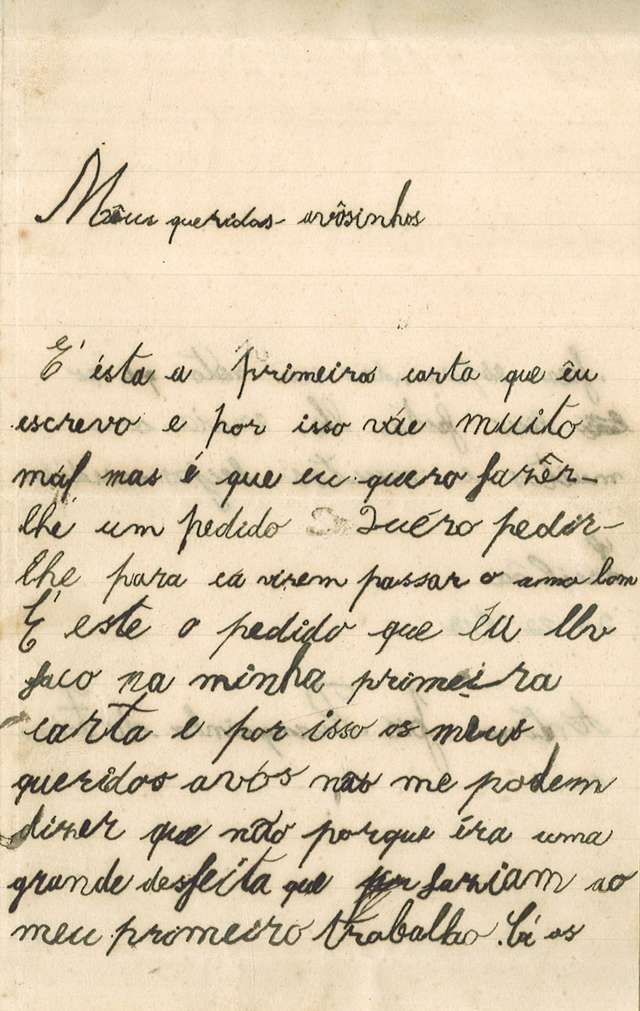 Mêus queridos avôsinhos
É ésta a primeira carta que êu
escrevo e por isso váe muito
mál mas é que eu quero fazêr-
lhe um pedido Quéro pedir-
lhe para cá virem passar o ano bom
É este o pedido que eu lhe
faco na minha primeira
carta e por isso os meus
queridos avós não me podem
dizer que não porque íra uma
grande desfeita que fariam ao
meu promeiro trabalho. Cí os